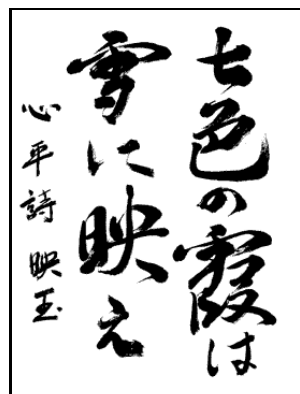 七色の霞は
雪に映え
心平詩 映玉